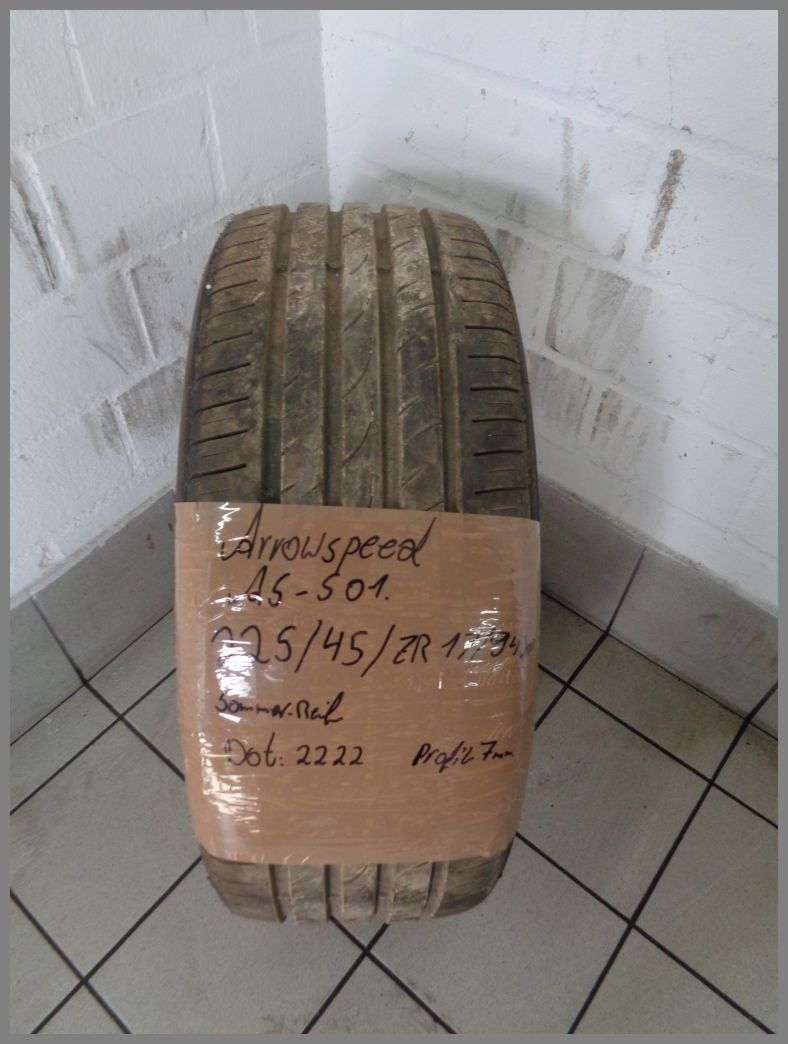 Arrowspeed
AS-S01.
225/45/ZR 17/94
Sommer-Reif
Dot: 2222 Profil 7mm